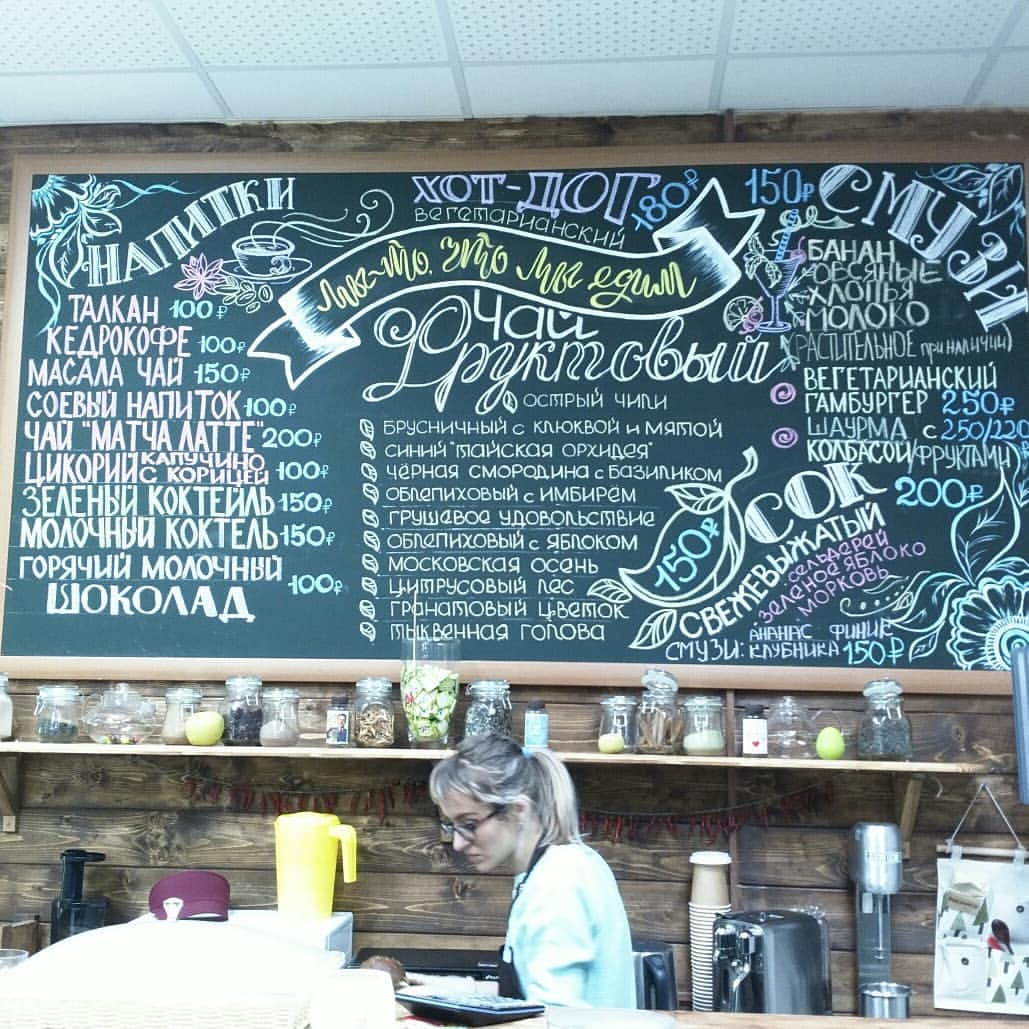 НАПИТКИ
ТАЛКАН 100₽
КЕДРОКОФЕ 100₽
МАСАЛА ЧАЙ 150₽
СОЕВЫЙ НАПИТОК 100₽
ЧАЙ "МАТЧА ЛАТТЕ" 200₽
ЦИКОРИЙ КАПУЧИНО
С КОРИЦЕЙ 100₽
ЗЕЛЕНЫЙ КОКТЕЙЛЬ 150₽
МОЛОЧНЫЙ КОКТЕЛЬ 150₽
ГОРЯЧИЙ МОЛОЧНЫЙ
ШОКОЛАД 100₽
ХОТ-ДОГ 180₽
ВЕГЕТАРИАНСКИЙ
Мы-то, что мы едим
ЧАЙ
Фруктовый
ОСТРЫЙ ЧИЛИ
БРУСНИЧНЫЙ С КЛЮКВОЙ И МЯТОЙ
СИНИЙ "ТАЙСКАЯ ОРХИДЕЯ"
ЧЁРНАЯ СМОРОДИНА С БАЗИЛИКОМ
ОБЛЕПИХОВЫЙ С ИМБИРЁМ
ГРУШЕВОЕ УДОВОЛЬСТВИЕ
ОБЛЕПИХОВЫЙ С ЯБЛОКОМ
МОСКОВСКАЯ ОСЕНЬ
ЦИТРУСОВЫЙ ЛЕС
ГРАНАТОВЫЙ ЦВЕТОК
ТЫКВЕННАЯ ГОЛОВА
150₽
150₽ СМУЗИ
БАНАН
ОВСЯНЫЕ
ХЛОПЬЯ
МОЛОКО
(РАСТИТЕЛЬНОЕ ПРИ НАЛИЧИИ)
ВЕГЕТАРИАНСКИЙ
ГАМБУРГЕР 250₽
ШАУРМА С 250/220
КОЛБАСОЙ/ФРУКТАМИ ₽
СОК 200₽
СВЕЖЕВЫЖАТЫЙ
СЕЛЬДЕРЕЙ
ЗЕЛЕНОЕ ЯБЛОКО
МОРКОВЬ
СМУЗИ: АНАНАС ФИНИК
КЛУБНИКА 150₽